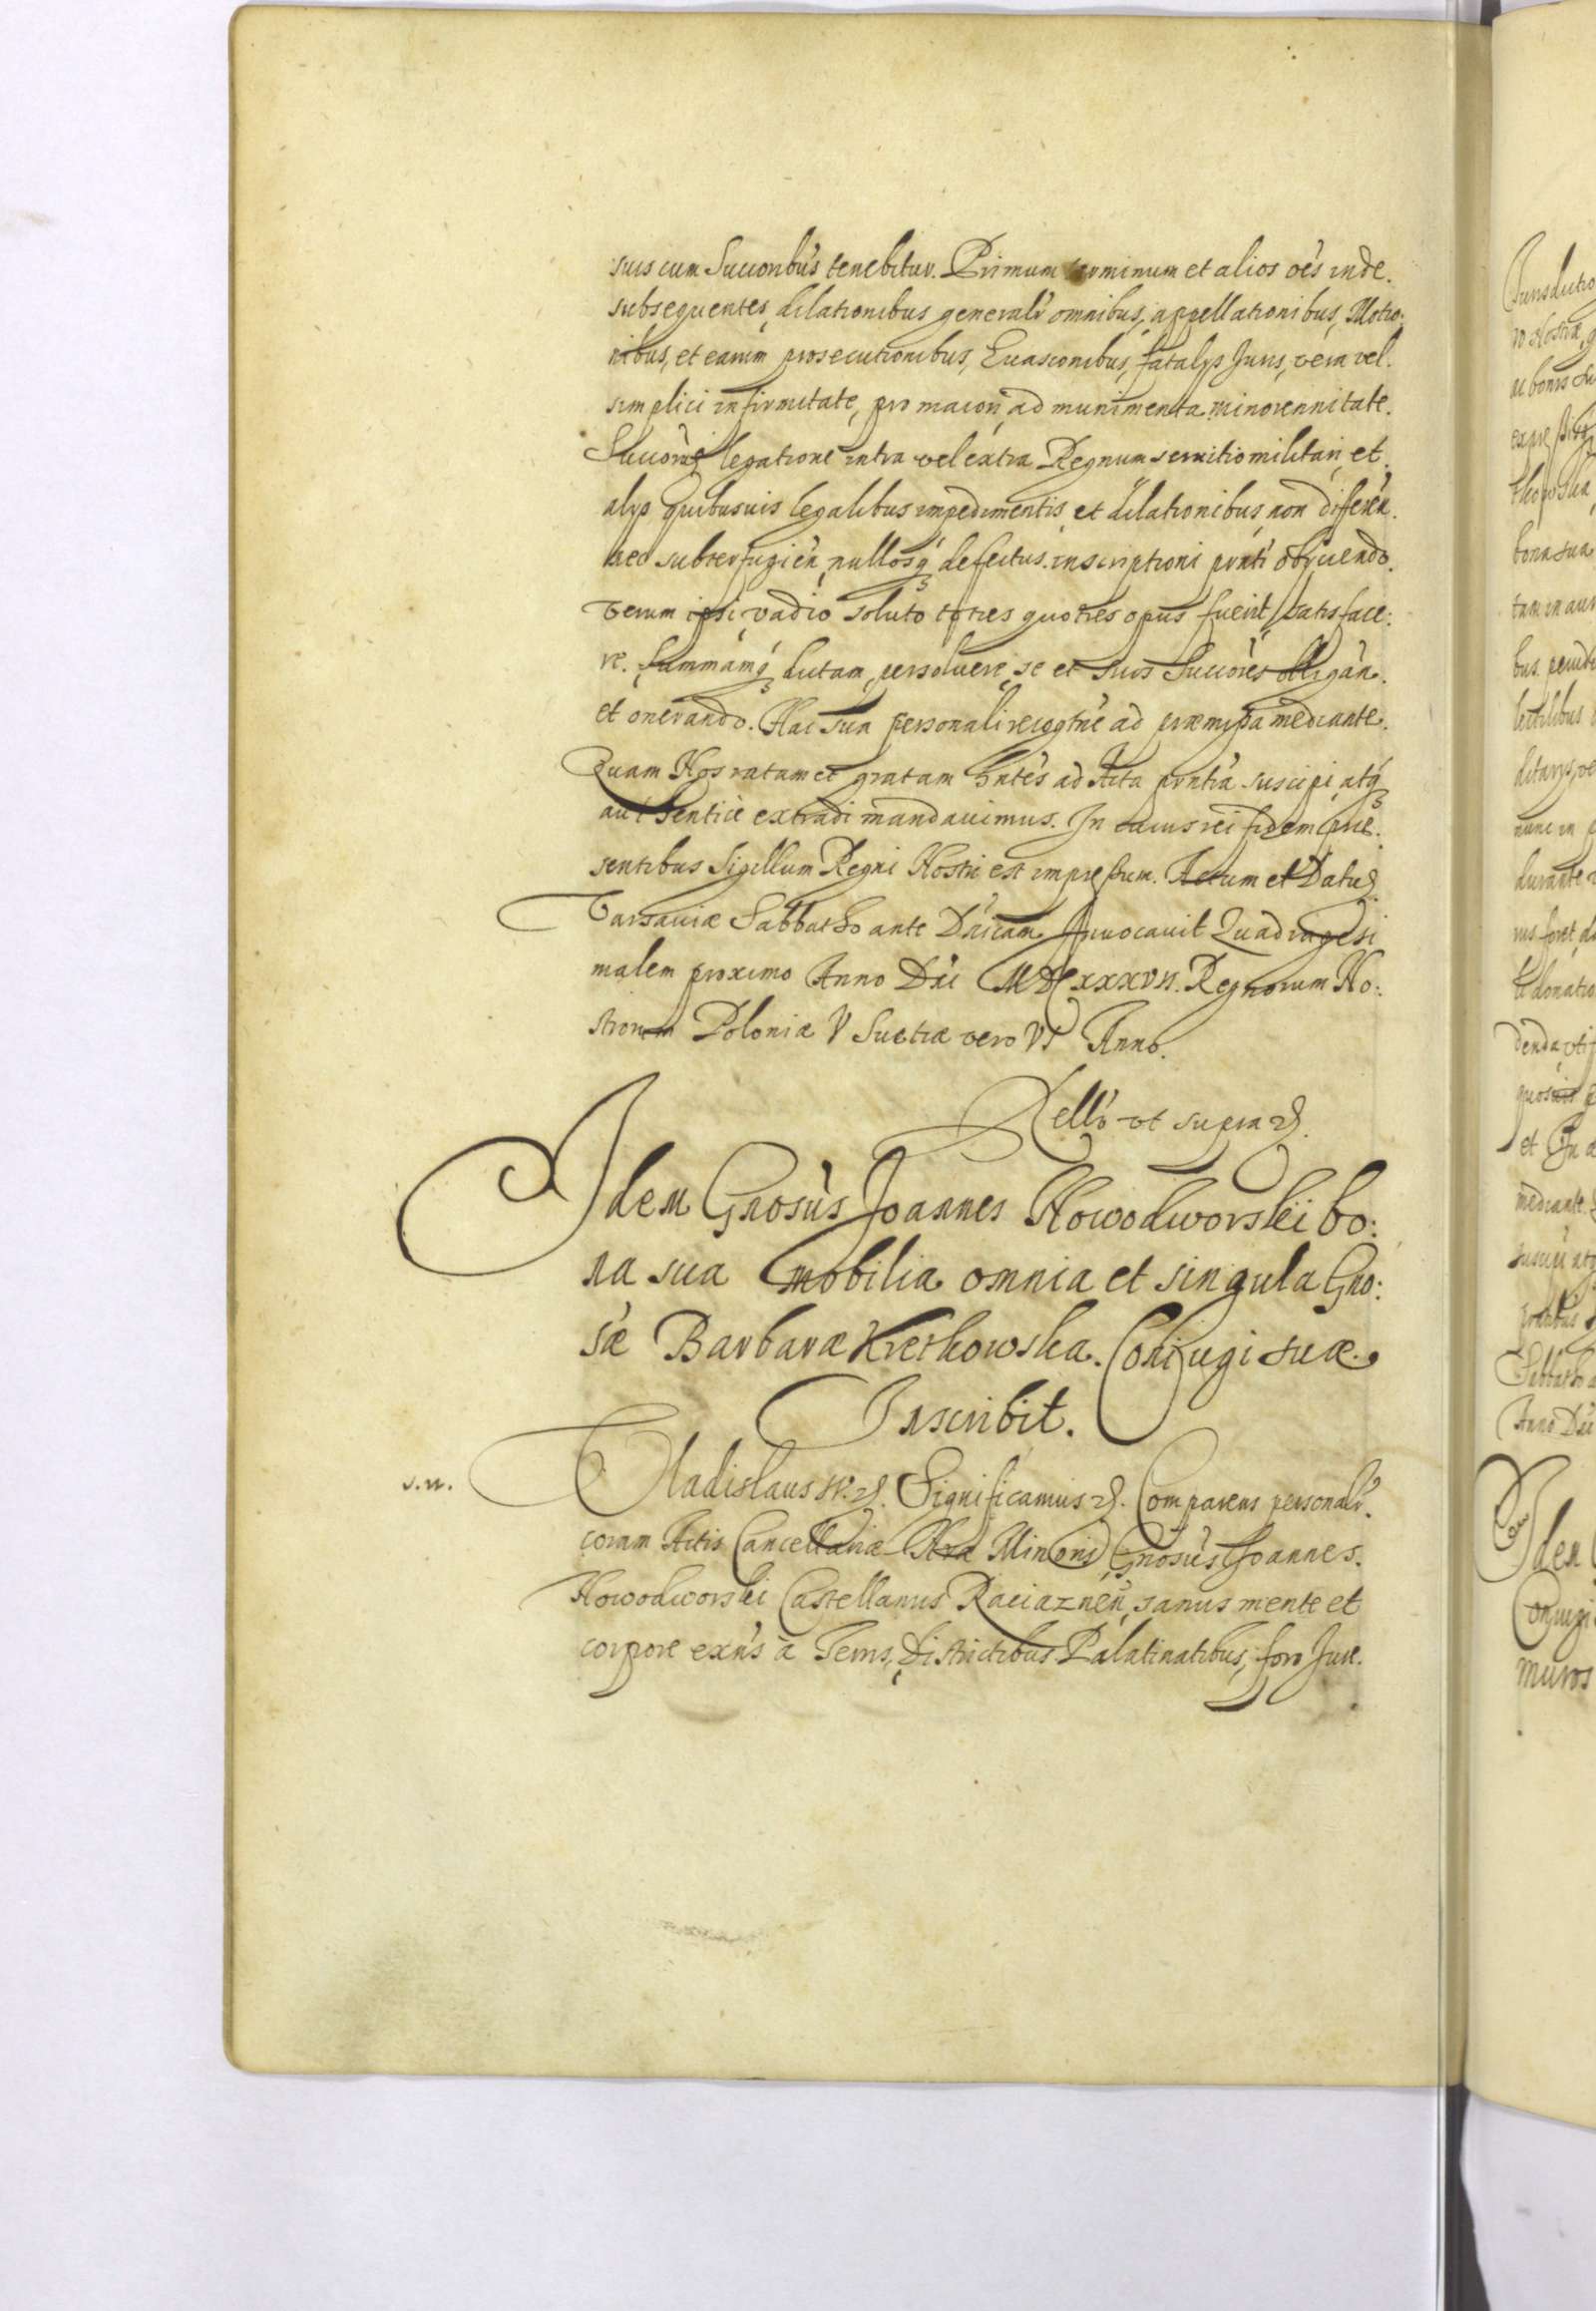 suis cum Succoribus tenebitur. Primum terminum et alios oes inde
subsequentes, dilationibus generalr omnibus, appellationibus, Motio:
nibus, et earum prosecutionibus, Euasionibus, fatalys Juris, vera vel
simplici infirmitate, pro maiori ad munimenta minorennitate
Succorum legatione intra vel extra Regnum seruitio militari et
alys quibusuis legalibus impedimentis et dilationibus non differen
nec subterfugien nullosq defectus inscriptioni pnti obyciendo.
verum ipsi vadio soluto toties quoties opus fuerit satisface:
re. Summamq dictam persoluere se et suos Succores obligan.
et onerando. Hac sua personali recogtne ad præmissa mediante.
Quam Nos ratam et gratam hntes ad Acta pntia suscipi atq
authentice extradi mandauimus. In cuius rei fidem præ
sentibus Sigillum Regni Nostri est impressum. Actum et Datum
Varsaviæ Sabbatho ante Dnicam Inuocavit Quadragesi
malem proximo Anno Dni MDCXXXVII. Regnorum No:
strorum Poloniæ V Suetiæ vero VI Anno.
Rello vt supra
Idem Gnosus Joannes Nowodworski bo:
na sua mobilia omnia et singula Gno:
sæ Barbaræ Kretkowska Coniugi suæ
Inscribit.
s.n.
Vladislaus IV. Significamus Comparens personalr.
coram Actis Cancellariæ Nræ Minoris Gnosus Joannes
Nowodworski Castellanus Raciaznen sanus mente et
corpore exns a Terris, Districtibus Palatinatibus, foro Jure